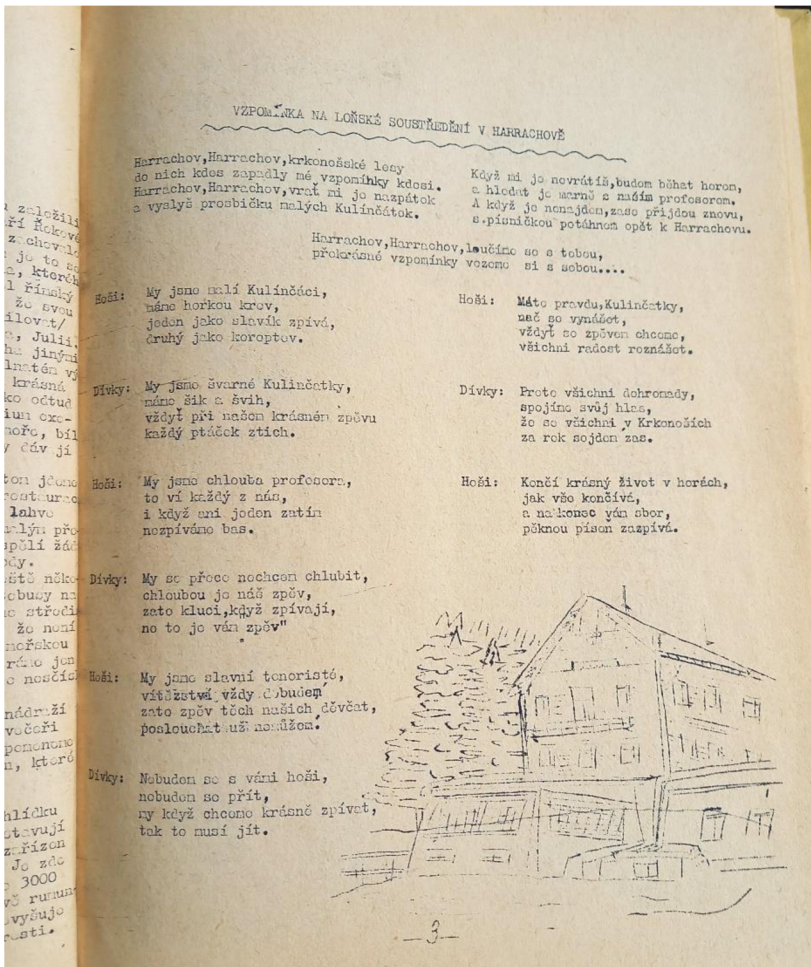 VZPOMÍNKA NA LOŇSKÉ SOUSTŘEDĚNÍ V HARRACHOVĚ
Harrachov,Harrachov,krkonošské lesy
do nich kdes zapadly mé vzpomínky kdesi.
Harrachov,Harrachov,vrať mi je nazpátek
a vyslyš prosbičku malých Kulínčátek.
Když mi je nevrátíš,budem běhat horem,
a hledat je marně s naším profesorem.
A když je nenajdem,zase přijdou znovu,
s písničkou potáhnem opět k Harrachovu.
Harrachov,Harrachov,loučíme se s tebou,
překrásné vzpomínky vezeme si s sebou....
Hoši: My jsme malí Kulínčáci,
máme horkou krev,
jeden jako slavík zpívá,
druhý jako koroptev.
Dívky: My jsme švarné Kulínčatky,
máme šik a švih,
vždyť při našem krásném zpěvu
každý ptáček ztich.
Hoši: My jsme chlouba profesora,
to ví každý z nás,
i když ani jeden zatím
nezpíváme bas.
Dívky: My se přece nechcem chlubit,
chloubou je náš zpěv,
zato kluci,když zpívají,
no to je vám zpěv"
Hoši: My jsme slavní tenoristé,
vítězství vždy dobudem
zato zpěv těch našich děvčat,
poslouchat už nemůžem.
Dívky: Nebudem se s vámi hoši,
nebudem se přít,
my když chceme krásně zpívat,
tak to musí jít.
Hoši: Máte pravdu,Kulínčatky,
nač se vynášet,
vždyť se zpěvem chceme,
všichni radost roznášet.
Dívky: Proto všichni dohromady,
spojíme svůj hlas,
že se všichni v Krkonoších
za rok sejdem zas.
Hoši: Končí krásný život v horách,
jak vše končívá,
a na konec vám sbor,
pěknou píseň zazpívá.
3